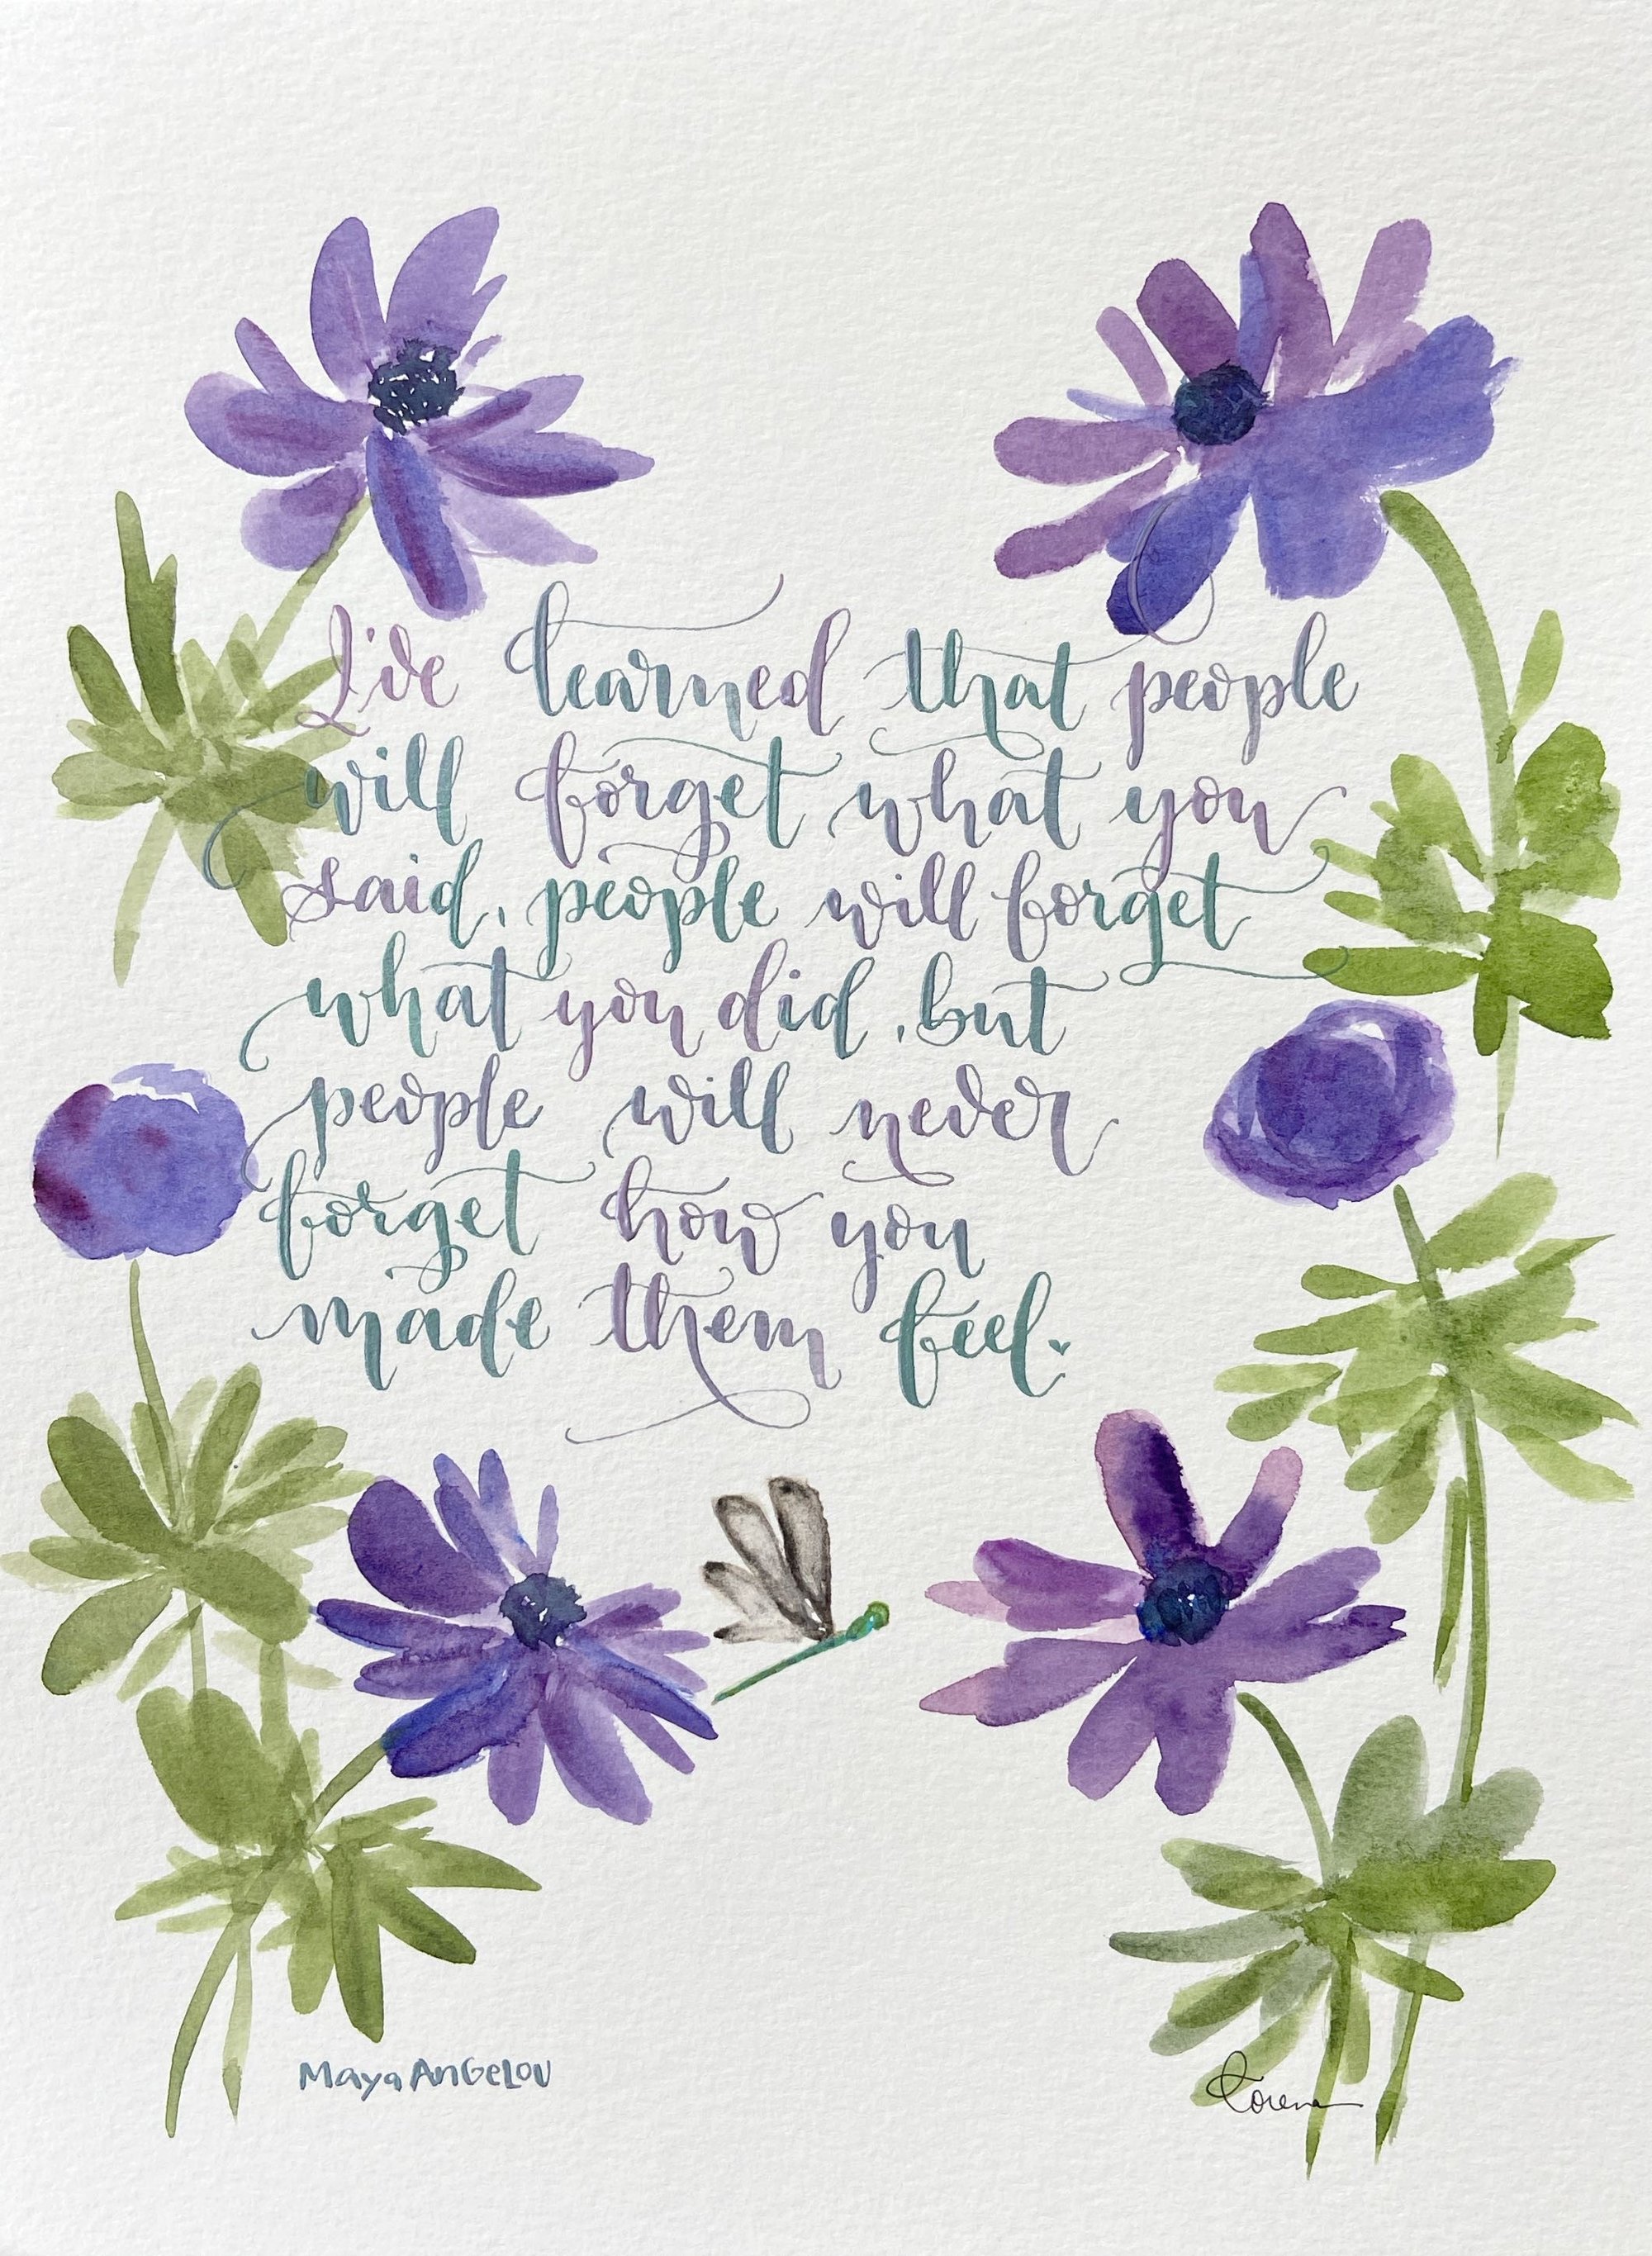 I've learned that people
will forget what you
said, people will forget
what you did, but
people will never
forget how you
made them feel.
Maya Angelou
Lorena